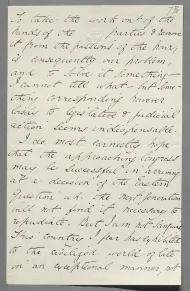 78
To take the work out of the
hands of the parties & remove
it from the passions of the hour,
is consequently our problem
and to solve it something—
I cannot tell what—but some-
thing corresponding
to legislative & judicial
action seems indispensable.
I do most earnestly hope
that the approaching Congress
may be successful in arriving
at a decision of the Eastern
Question wh. the next generation
will not find it necessary to
repudiate. But I am not sanguine
This country
to the civilized world of late
in an exceptional manner, not